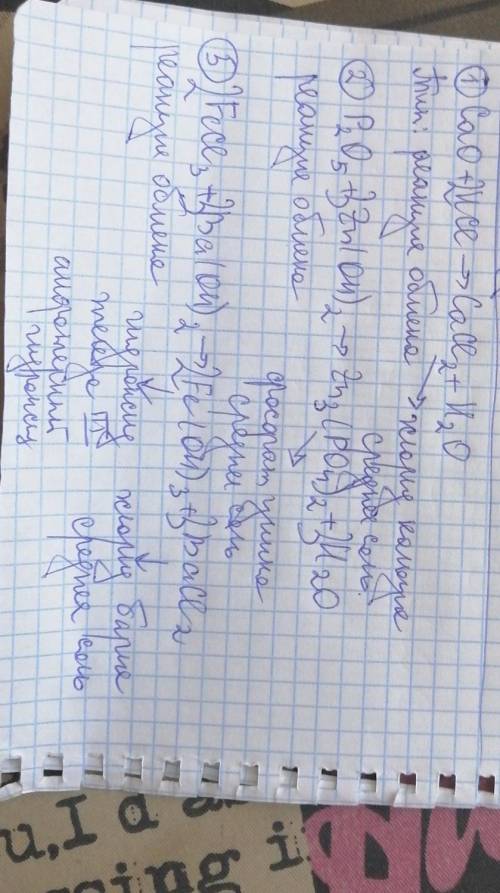 ① CaO + 2HCl → CaCl2 + H2O
Тип: реакция обмена → хлорид кальция
средняя соль
② P2O5 + 3Zn(OH)2 → Zn3(PO4)2 + 3H2O
реакция обмена
фосфат цинка
средняя соль
③ 2FeCl3 + 3Ba(OH)2 → 2Fe(OH)3 + 3BaCl2
реакция обмена
гидроксид
железа III
амфотерный
гидроксид
хлорид бария
средняя соль
u, I d a
ssing i